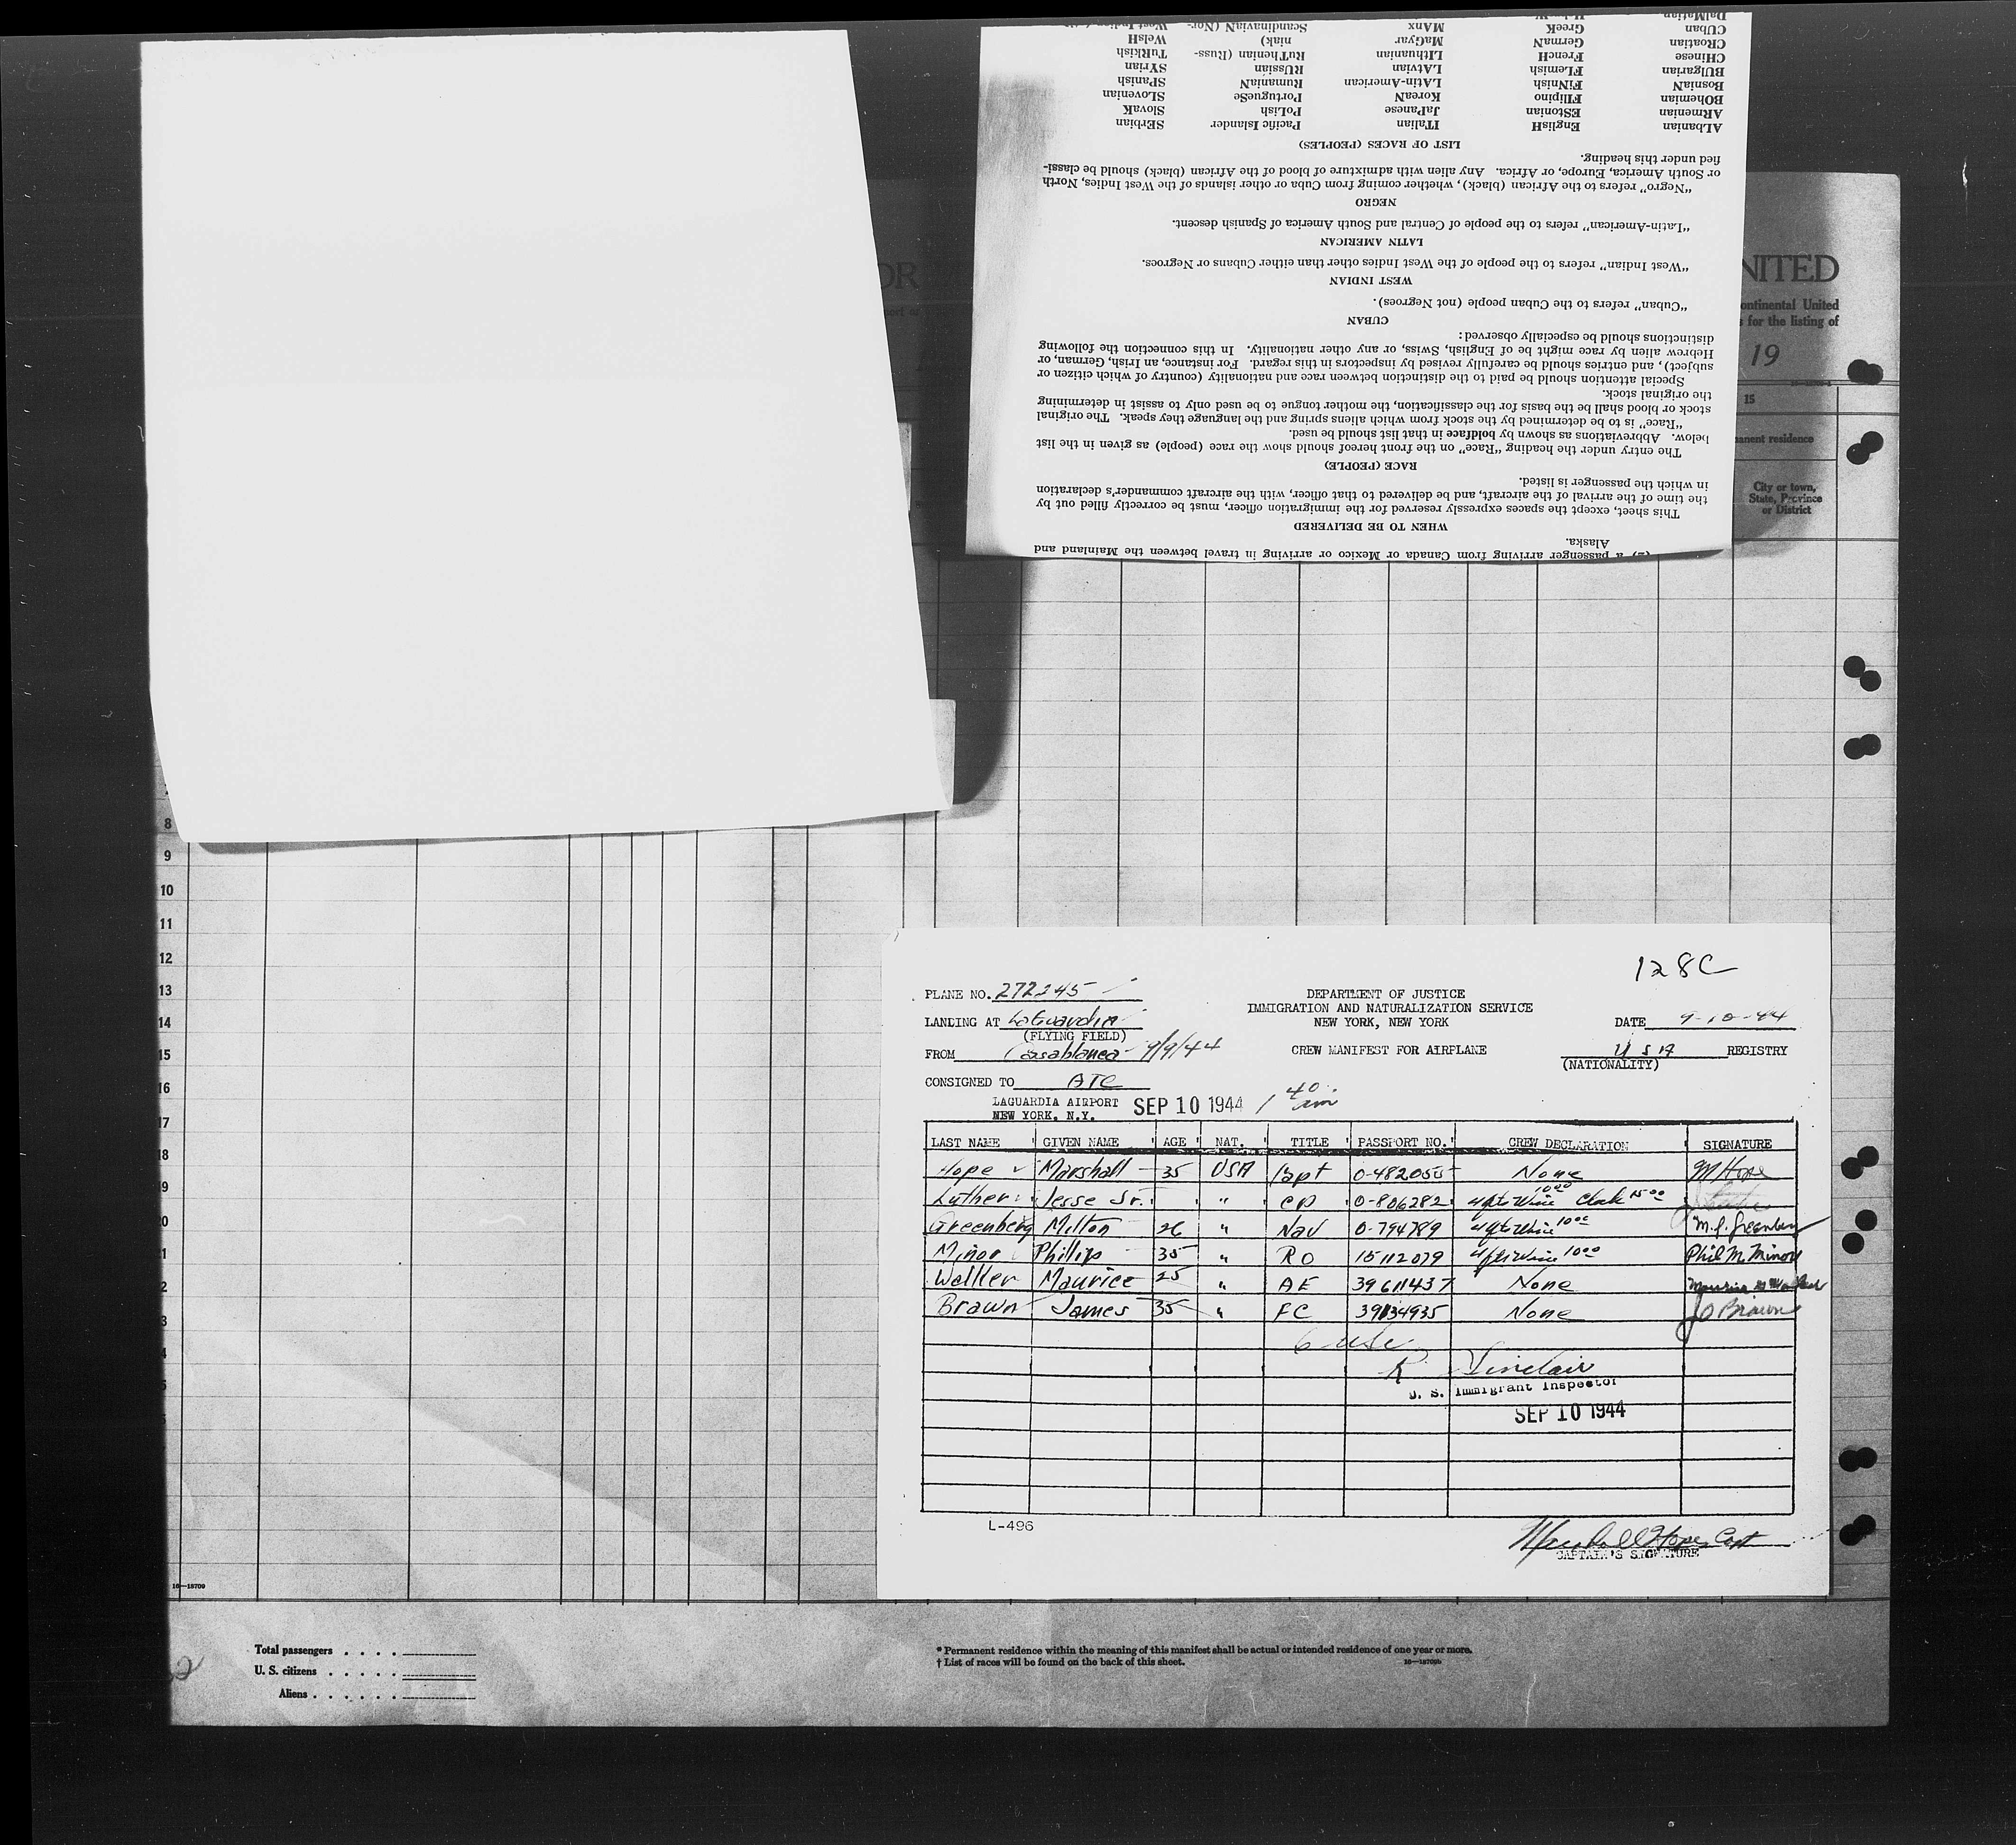 DalMatian HebreW MAnx ScandinaviaN (Nor-
CUban GreeK MAnx
CRoatian GermaN MaGyar niak) WelsH
CHinese FrencH LIthuanian RuThenian (Russ- TuRkish
BUlgarian FLemish LAtvian RUssian SYrian
BosniaN FiNnish LAtin-American RumaniaN SPanish
BOhemian FIlipino KoreaN PortugueSe SLovenian
ARmenian EStonian JaPanese PoLish SlovaK
ALbanian EngliSH ITalian Pacific Islander SErbian
LIST OF RACES (PEOPLES)
fied under this heading.
or South America, Europe, or Africa. Any alien with admixture of blood of the African (black) should be classi-
"Negro" refers to the African (black), whether coming from Cuba or other islands of the West Indies, North
NEGRO
"Latin-American" refers to the people of Central and South America of Spanish descent.
LATIN AMERICAN
"West Indian" refers to the people of the West Indies other than either Cubans or Negroes.
WEST INDIAN
"Cuban" refers to the Cuban people (not Negroes).
CUBAN
distinctions should be especially observed:
Hebrew alien by race might be of English, Swiss, or any other nationality. In this connection the following
subject), and entries should be carefully revised by inspectors in this regard. For instance, an Irish, German, or
Special attention should be paid to the distinction between race and nationality (country of which citizen or
the original stock.
stock or blood shall be the basis for the classification, the mother tongue to be used only to assist in determining
"Race" is to be determined by the stock from which aliens spring and the language they speak. The original
below. Abbreviations as shown by boldface in that list should be used.
The entry under the heading "Race" on the front hereof should show the race (people) as given in the list
RACE (PEOPLE)
in which the passenger is listed.
the time of the arrival of the aircraft, and be delivered to that officer, with the aircraft commander's declaration
This sheet, except the spaces expressly reserved for the immigration officer, must be correctly filled out by
WHEN TO BE DELIVERED
Alaska.
(2) a passenger arriving from Canada or Mexico or arriving in travel between the Mainland and
OR
NITED
ontinental United
s for the listing of
19
15
anent residence
City or town,
State, Province
or District
8
9
10
11
12
13
14
15
16
17
18
128C
PLANE NO. 272245
DEPARTMENT OF JUSTICE
IMMIGRATION AND NATURALIZATION SERVICE
LANDING AT LaGuardia NEW YORK, NEW YORK DATE 9-10-44
(FLYING FIELD)
FROM Casablanca 9/9/44 CREW MANIFEST FOR AIRPLANE USA REGISTRY
(NATIONALITY)
CONSIGNED TO ATC
LAGUARDIA AIRPORT SEP 10 1944 1 40 am
NEW YORK, N.Y.
LAST NAME GIVEN NAME AGE NAT. TITLE PASSPORT NO. CREW DECLARATION SIGNATURE
Hope Marshall 35 USA Capt 0-482055 None M Hope
Luther Jesse Jr. " CP 0-806282 4 qts Wine 10 00 Clock 15 00
Greenberg Milton 26 " Nav 0-794789 4 qts Wine 10 00 M. J. Greenberg
Minor Phillip 35 " RO 15112079 4 qts Wine 10 00 Phil M. Minor
Walker Maurice 25 " AE 39611437 None Maurice Walker
Brawn James 35 " FC 39134935 None J O Brawn
6 USC
R Sinclair
U. S. Immigrant Inspector
SEP 10 1944
L-496
Marshall Hope, Capt
CAPTAIN'S SIGNATURE
16—18709
Total passengers
U. S. citizens
Aliens
* Permanent residence within the meaning of this manifest shall be actual or intended residence of one year or more.
† List of races will be found on the back of this sheet. 16—18709b